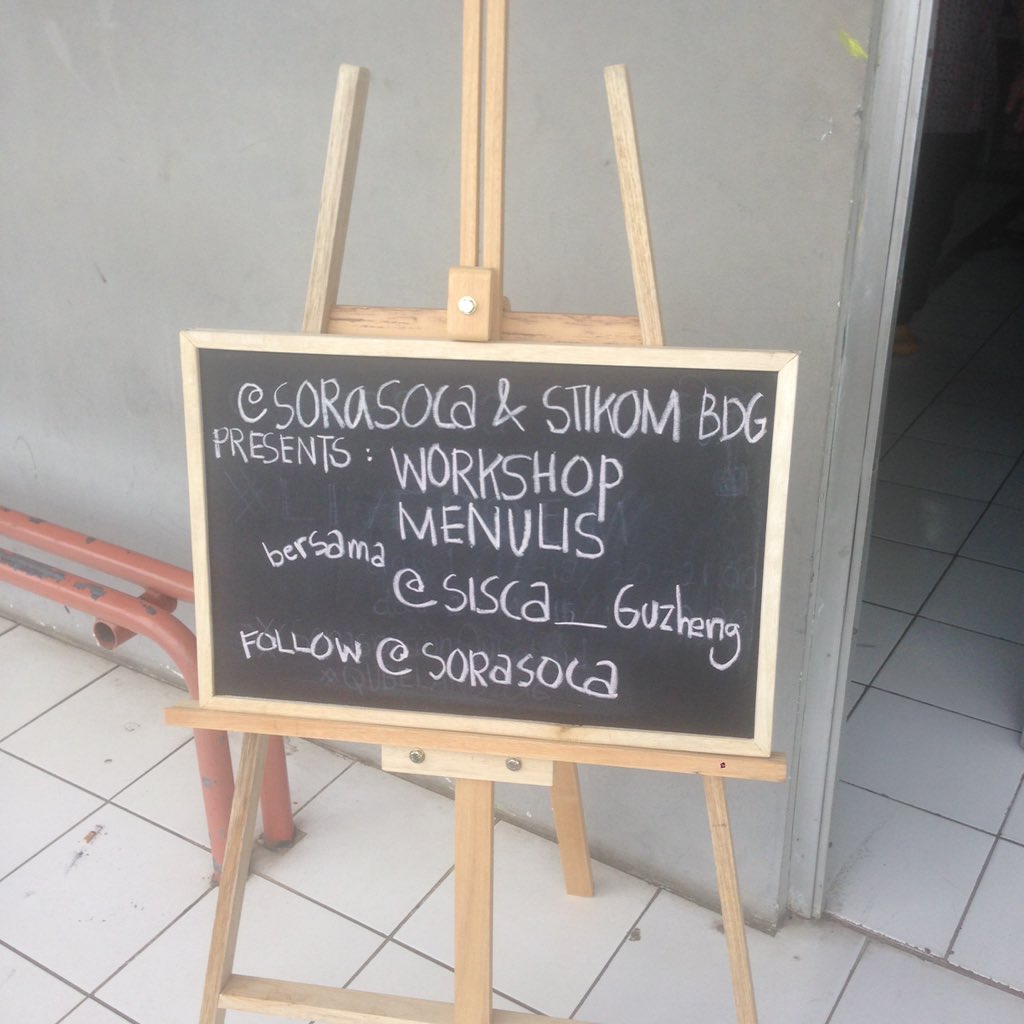 @SORASOCA & STIKOM BDG
PRESENTS : WORKSHOP
MENULIS
bersama
@SISCA__Guzheng
FOLLOW @SORASOCA